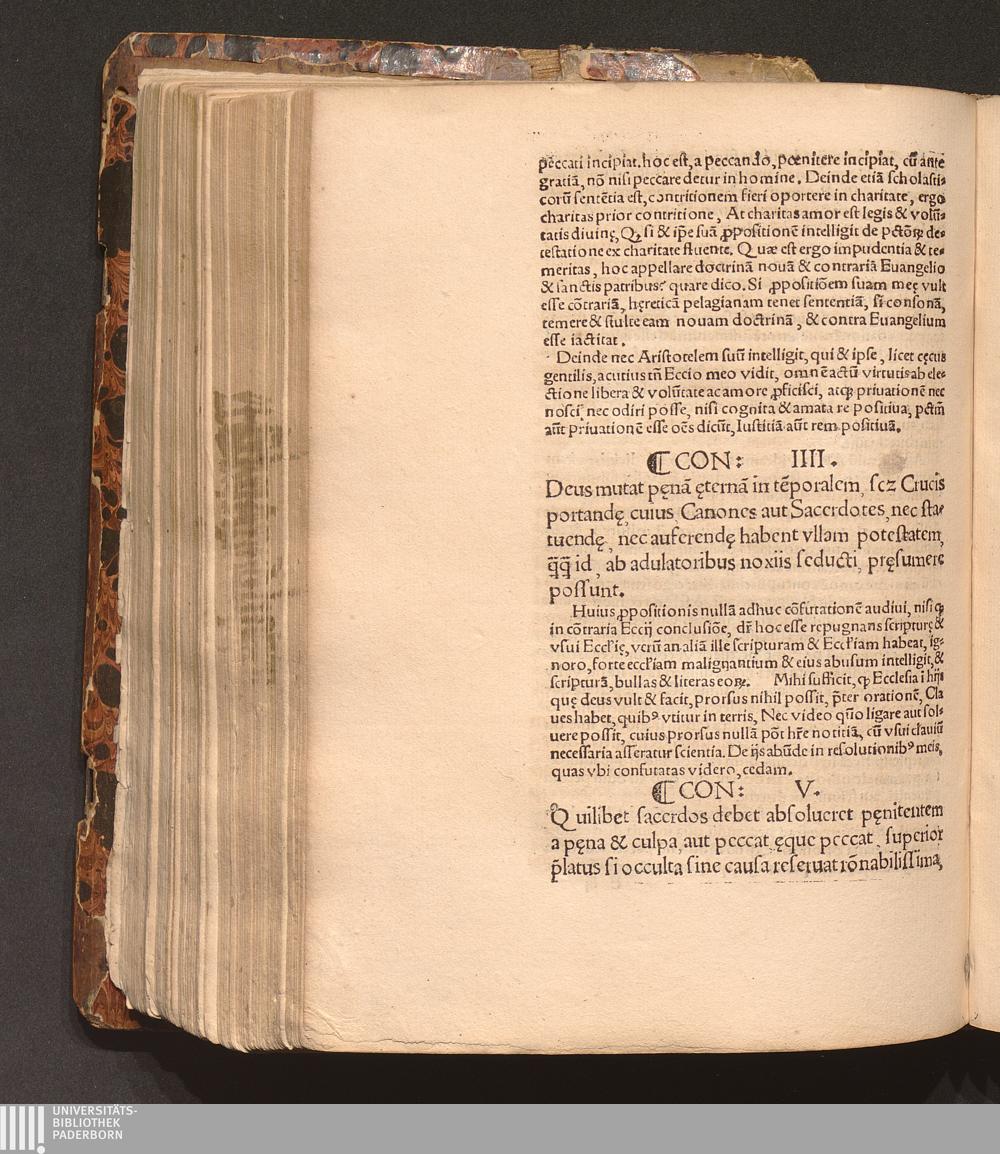 peccati incipiat. hoc est, a peccando, pœnitere incipiat, cũ ante
gratiã, nõ nisi peccare detur in homine. Deinde etiã scholasti⸗
corũ sentẽtia est, contritionem fieri oportere in charitate, ergo
charitas prior contritione, At charitas amor est legis & volũ⸗
tatis diuinę, Q, si & ip̃e suã ꝓpositionẽ intelligit de pctõꝝ de⸗
testatione ex charitate fluente. Quæ est ergo impudentia & te⸗
meritas, hoc appellare doctrinã nouã & contrariã Euangelio
& sanctis patribus? quare dico. Si ꝓpositiõem suam meę vult
esse cõtrariã, hęreticã pelagianam tenet sententiã, si consonã,
temere & stulte eam nouam doctrinã, & contra Euangelium
esse iactitat.
Deinde nec Aristotelem suũ intelligit, qui & ipse, licet cęcus
gentilis, acutius tñ Eccio meo vidit, omnẽ actũ virtutis ab ele⸗
ctione libera & volũtate ac amore ꝓficisci, atqꝫ priuationẽ nec
nosci, nec odiri posse, nisi cognita & amata re positiua, pctm̃
aũt priuationẽ esse oẽs dicũt, Iustitiã aũt rem positiuã.
⸿ CON: IIII.
Deus mutat pęnã ęternã in tẽporalem, scꝫ Crucis
portandę, cuius, Canones aut Sacerdotes, nec sta⸗
tuendę, nec auferendę habent vllam potestatem,
q̃q̃ id, ab adulatoribus noxiis seducti, pręsumere
possunt.
Huius ꝓpositionis nullã adhuc cõfutationẽ audiui, nisi ꝙ
in cõtraria Eccij conclusiõe, dr̃ hoc esse repugnans scripturę &
vsui Eccl'ię, verũ an aliã ille scripturam & Eccl'iam habeat, ig⸗
noro, forte eccl'iam malignantium & eius abusum intelligit, &
scripturã, bullas & literas eoꝝ. Mihi sufficit, ꝙ Ecclesia i hijs
quę deus vult & facit, prorsus nihil possit, p̃ter orationẽ, Cla
ues habet, quibꝰ vtitur in terris, Nec video quõ ligare aut sol⸗
uere possit, cuius prorsus nullã põt hr̃e notitiã, cũ vsui clauiũ
necessaria asseratur scientia. De ijs abũde in resolutionibꝰ meis,
quas vbi confutatas videro, cedam.
⸿ CON: V.
Quilibet sacerdos debet absoluere pęnitentem
a pęna & culpa, aut peccat, ęque peccat, superior
p̃latus si occulta sine causa reseruat rõnabilissima,
UNIVERSITÄTS-
BIBLIOTHEK
PADERBORN